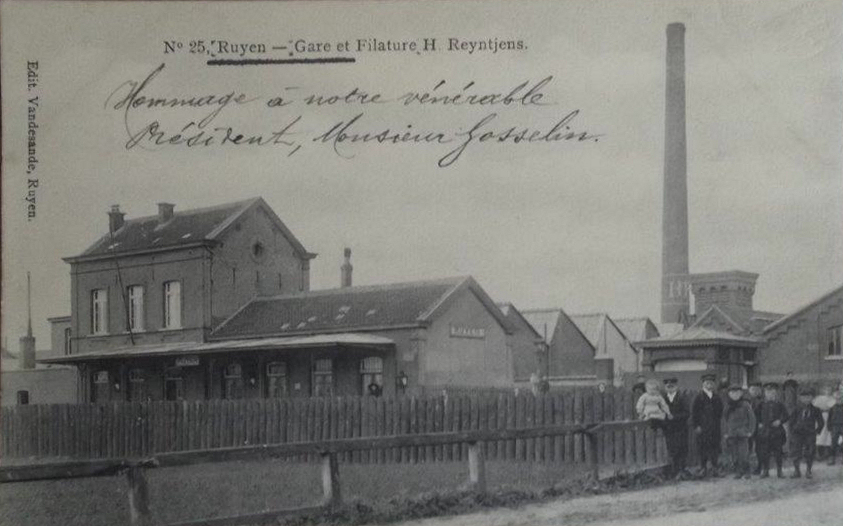 Nº 25, Ruyen — Gare et Filature H. Reyntjens.
Hommage à notre vénérable
Président, Monsieur Gosselin.
Edit. Vandesande, Ruyen.
RUYEN